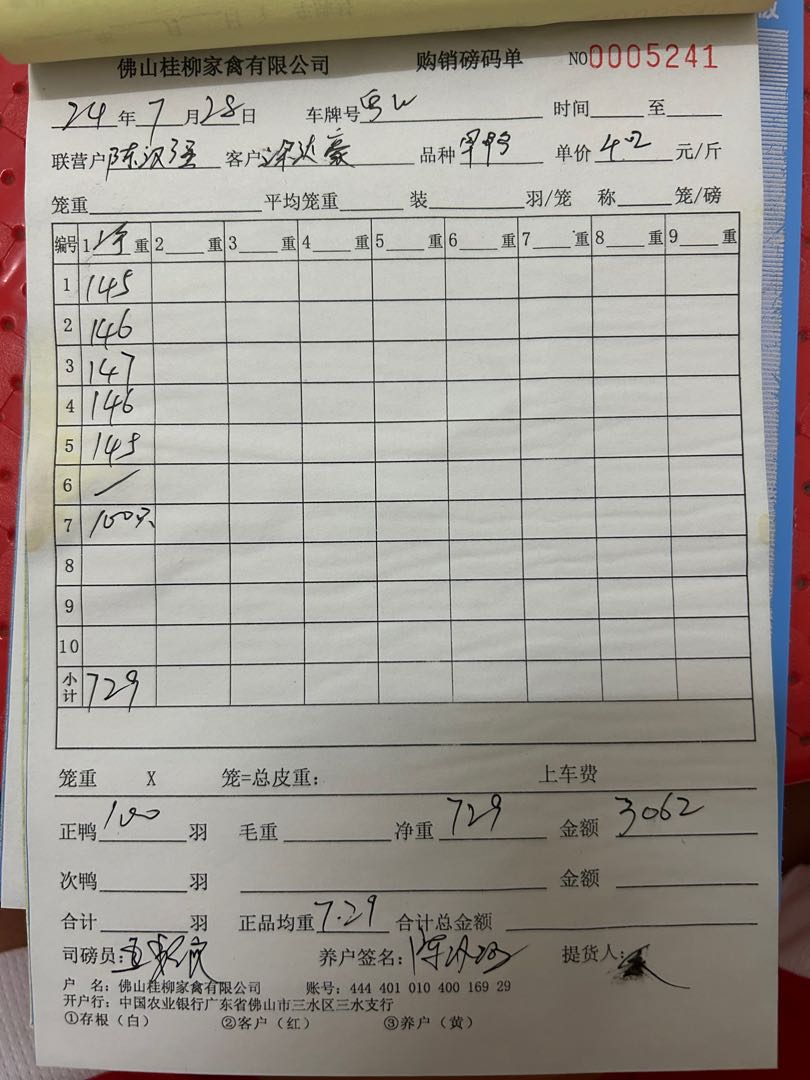 佛山桂柳家禽有限公司 购销磅码单 NO0005241
24年7月28日 车牌号 时间 至
联营户 陈汉强 客户 达豪 品种 单价 4.2 元/斤
笼重 平均笼重 装 羽/笼 称 笼/磅
编号 1 净 重 2 重 3 重 4 重 5 重 6 重 7 重 8 重 9 重
1 145
2 146
3 147
4 146
5 145
6 /
7 100只
8
9
10
小计 729
笼重 X 笼=总皮重: 上车费
正鸭 100 羽 毛重 净重 729 金额 3062
次鸭 羽 金额
合计 羽 正品均重 7.29 合计总金额
司磅员: 养户签名: 陈汉强 提货人:
户 名: 佛山桂柳家禽有限公司 账号: 444 401 010 400 169 29
开户行: 中国农业银行广东省佛山市三水区三水支行
①存根(白) ②客户(红) ③养户(黄)